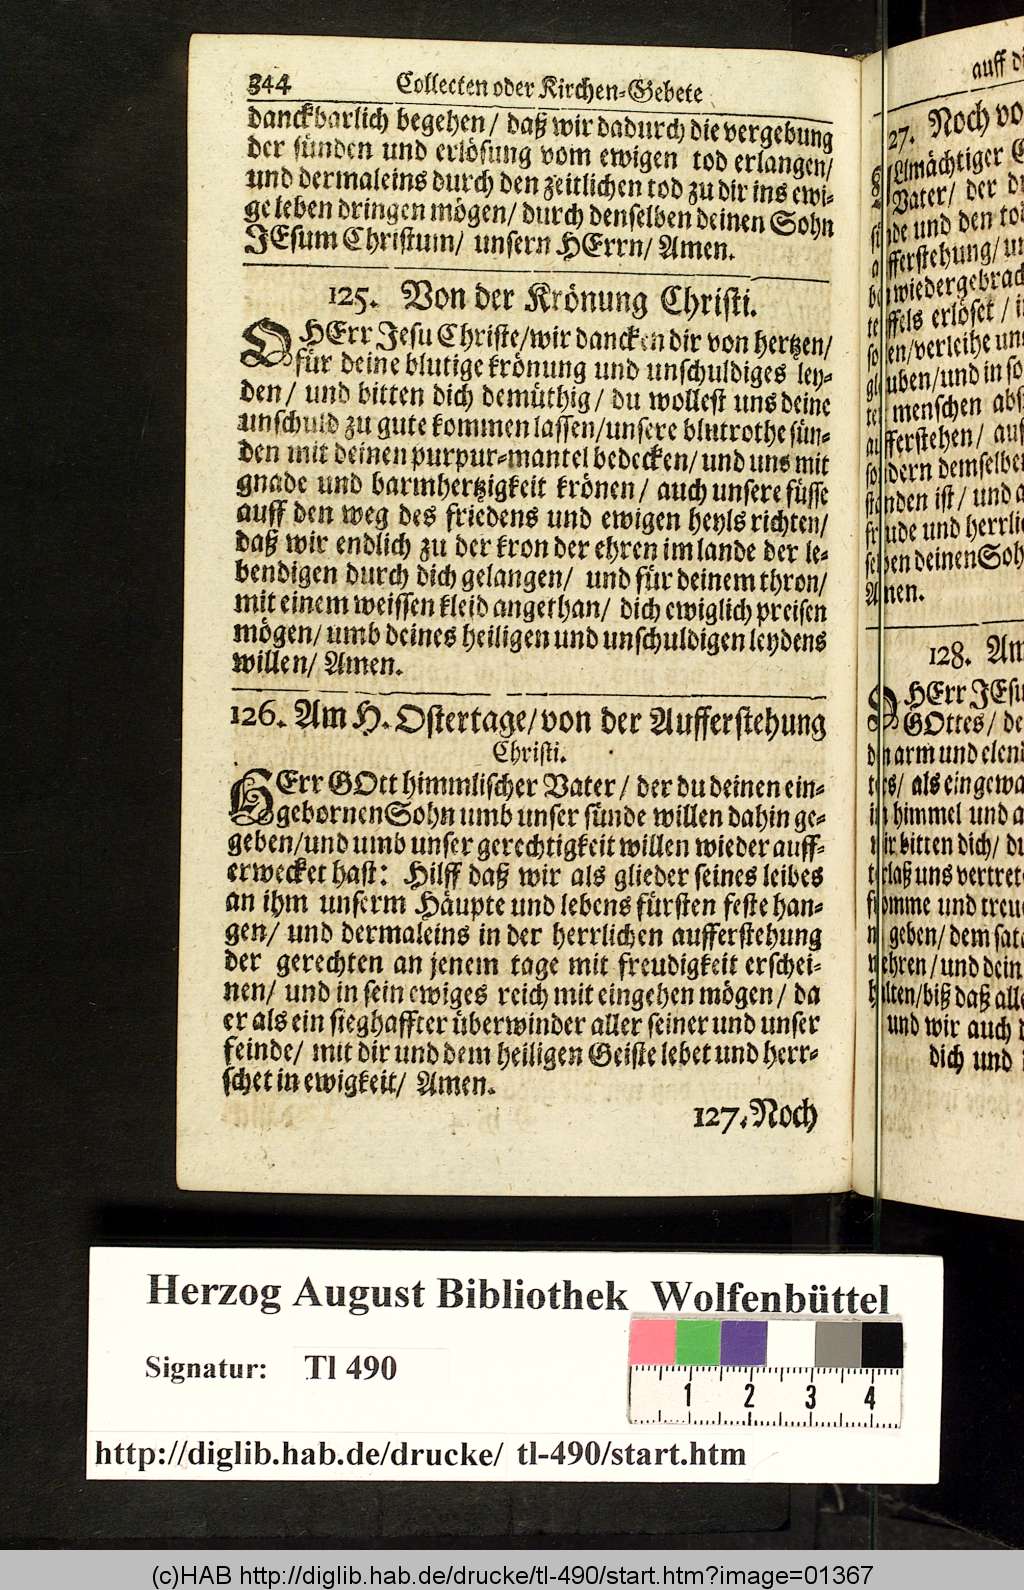 344 Collecten oder Kirchen-Gebete
danckbarlich begehen/ daß wir dadurch die vergebung
der sünden und erlösung vom ewigen tod erlangen/
und dermaleins durch den zeitlichen tod zu dir ins ewi-
ge leben dringen mögen/ durch denselben deinen Sohn
JEsum Christum/ unsern HErrn/ Amen.
125. Von der Krönung Christi.
O HErr Jesu Christe/wir dancken dir von hertzen/
für deine blutige krönung und unschuldiges ley-
den/ und bitten dich demüthig/ du wollest uns deine
unschuld zu gute kommen lassen/unsere blutrothe sün-
den mit deinen purpur-mantel bedecken/ und uns mit
gnade und barmhertzigkeit krönen/ auch unsere füsse
auff den weg des friedens und ewigen heyls richten/
daß wir endlich zu der kron der ehren im lande der le-
bendigen durch dich gelangen/ und für deinem thron/
mit einem weissen kleid angethan/ dich ewiglich preisen
mögen/ umb deines heiligen und unschuldigen leydens
willen/ Amen.
126. Am H. Ostertage/von der Aufferstehung
Christi.
HErr GOtt himmlischer Vater/ der du deinen ein-
gebornen Sohn umb unser sünde willen dahin ge-
geben/und umb unser gerechtigkeit willen wieder auff-
erwecket hast: Hilff daß wir als glieder seines leibes
an ihm unserm Häupte und lebens fürsten feste han-
gen/ und dermaleins in der herrlichen aufferstehung
der gerechten an jenem tage mit freudigkeit erschei-
nen/ und in sein ewiges reich mit eingehen mögen/ da
er als ein sieghaffter überwinder aller seiner und unser
feinde/ mit dir und dem heiligen Geiste lebet und herr-
schet in ewigkeit/ Amen.
127. Noch
auff
27. Noch
Allmächtiger
Vater/ der
und den
aufferstehung/
wiedergebrach
erlöset/
verleihe
und in
menschen
aufferstehen/
sondern
ist/ und
freude und
deinen Soh
Amen.
128. Am
O HErr JEsu
GOttes/
arm und
als
himmel und
wir bitten dich/
laß uns
fromme und
geben/ dem
und dein
biß daß
und wir auch
dich und
Herzog August Bibliothek Wolfenbüttel
Signatur: Tl 490
1 2 3 4
http://diglib.hab.de/drucke/ tl-490/start.htm
(c)HAB http://diglib.hab.de/drucke/tl-490/start.htm?image=01367